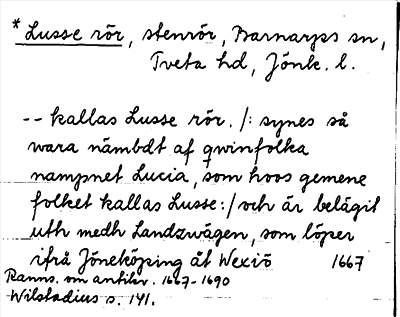 * Lusse rör, stenrör, Barnarps sn,
Tveta hd, Jönk. l.
-- kallas Lusse rör. /: synes så
wara nämbdt af qwinfolka
nampnet Lucia, som hoos gemene
folket kallas Lusse:/ och är belägit
uth medh Landzwägen, som löper
ifrå Jöneköping åt Wexiö 1667
Ranns. om antikv. 1667-1690
Wilstadius s. 141.